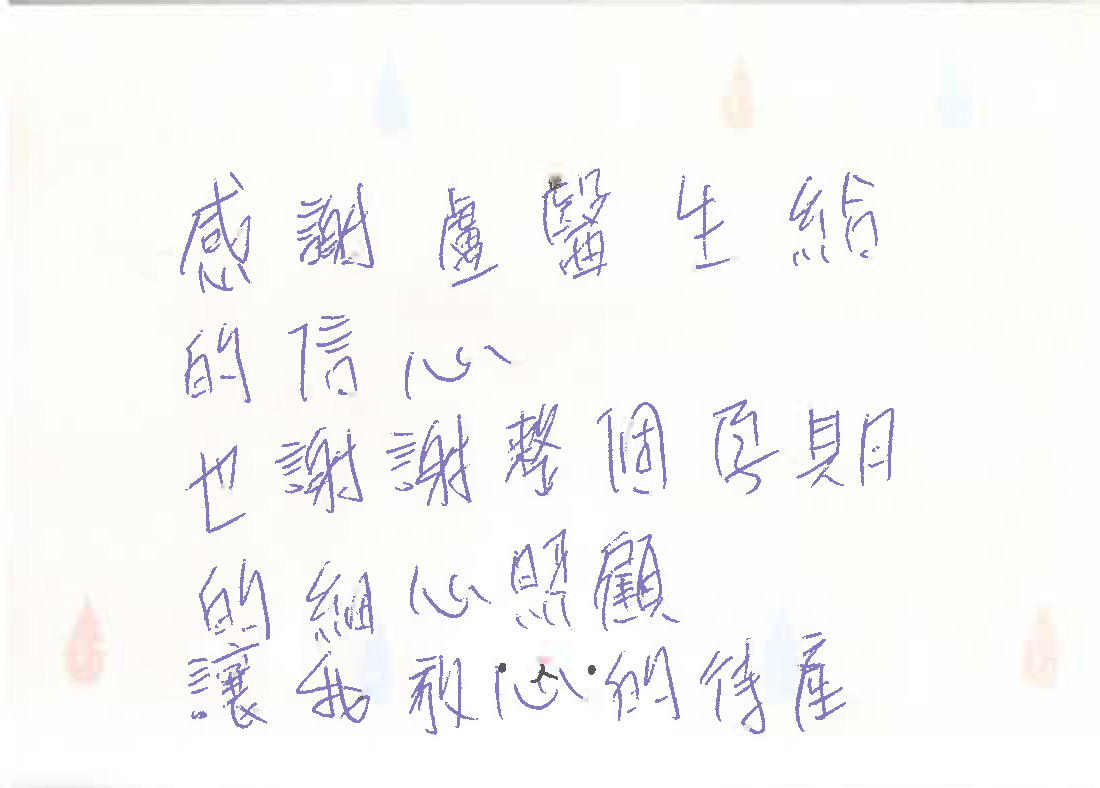 感謝盧醫生給
的信心
也謝謝整個孕期
的細心照顧
讓我放心的待產